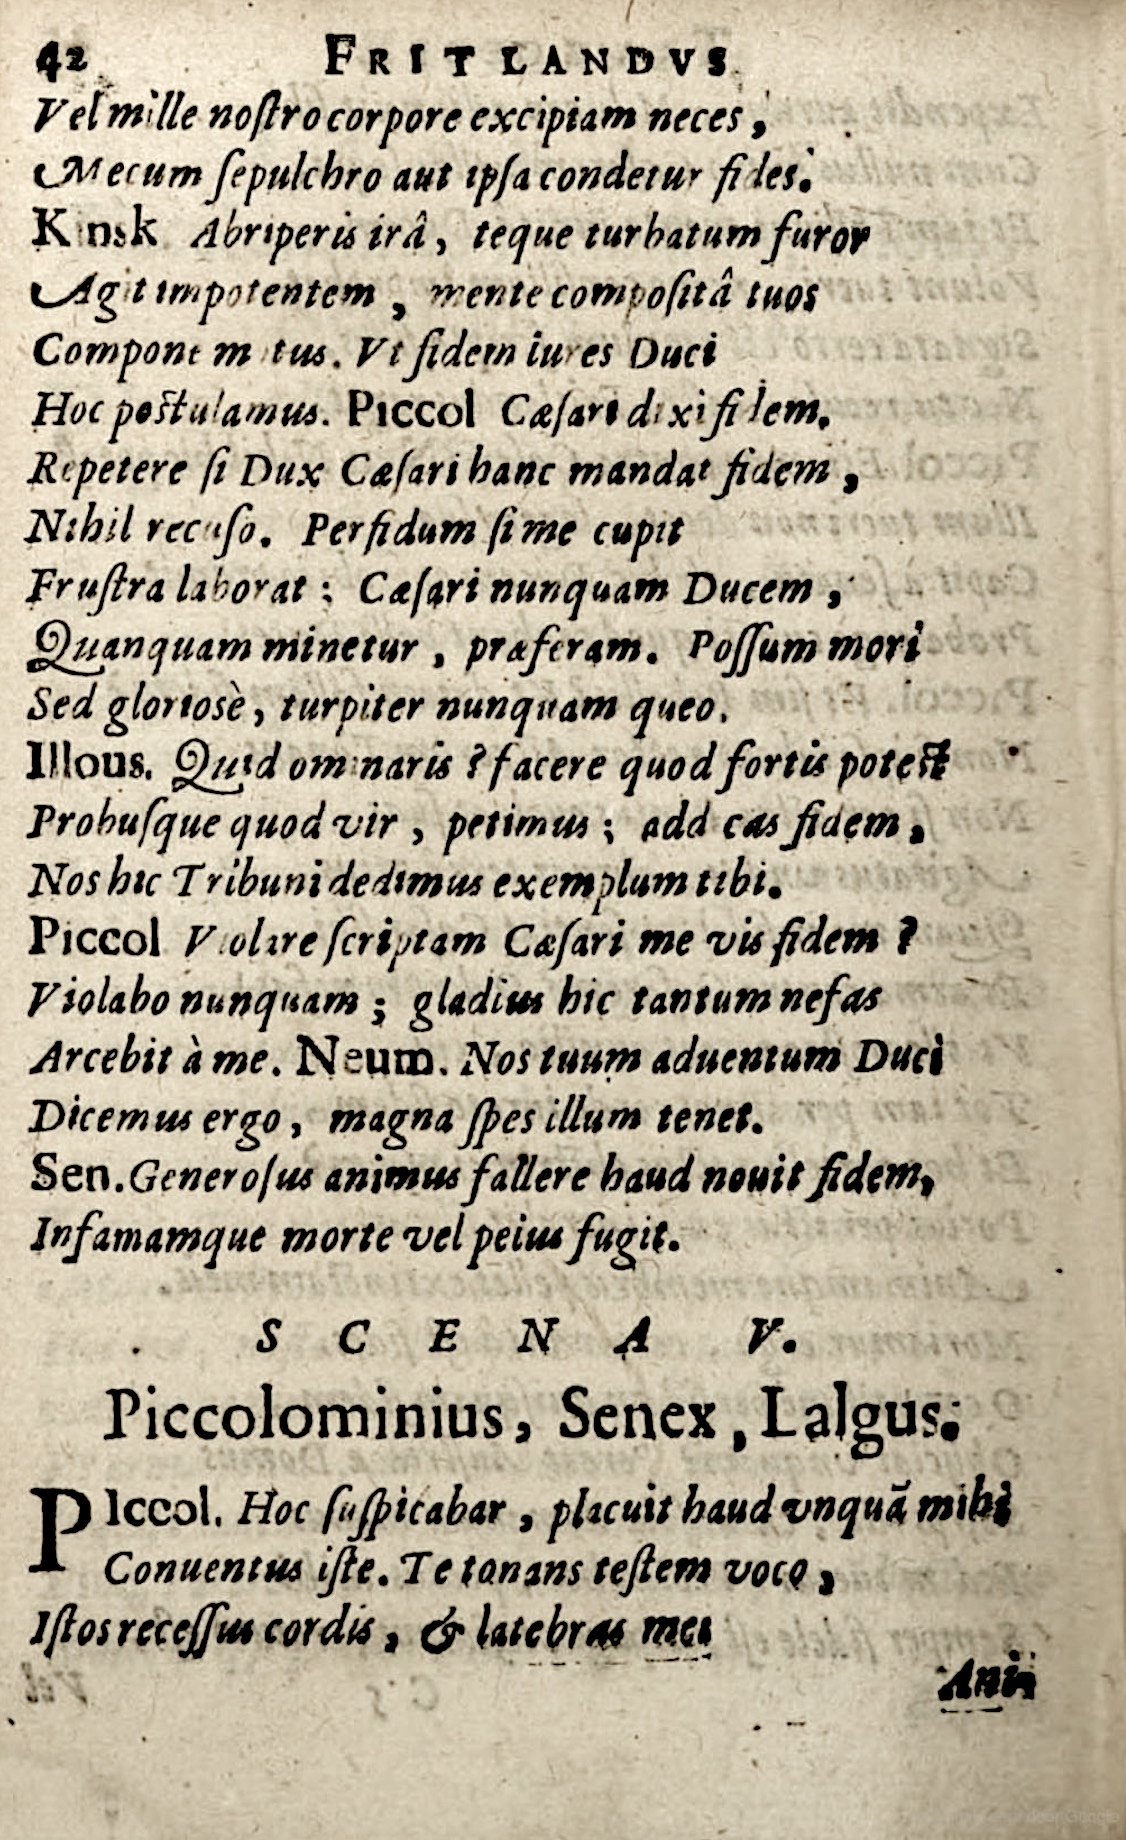 42 FRITLANDVS
Vel mille noſtro corpore excipiam neces,
Mecum ſepulchro aut ipſa condetur fides.
Kinsk Abriperis irâ, teque turbatum furor
Agit impotentem, mente compoſitâ tuos
Compone motus. Vt fidem iures Duci
Hoc poſtulamus. Piccol Cæſari dixi fidem.
Repetere ſi Dux Cæſari hanc mandat fidem,
Nihil recuſo. Perfidum ſi me cupit
Fruſtra laborat: Cæſari nunquam Ducem,
Quanquam minetur, præferam. Poſſum mori
Sed gloriosè, turpiter nunquam queo.
Illous. Quid ominaris? facere quod fortis poteſt
Probuſque quod vir, petimus; addicas fidem,
Nos hic Tribuni dedimus exemplum tibi.
Piccol Violare ſcriptam Cæſari me vis fidem?
Violabo nunquam; gladius hic tantum nefas
Arcebit à me. Neum. Nos tuum aduentum Duci
Dicemus ergo, magna ſpes illum tenet.
Sen. Generoſus animus fallere haud nouit fidem,
Infamamque morte vel peius fugit.
SCENA V.
Piccolominius, Senex, Lalgus.
PIccol. Hoc ſuſpicabar, placuit haud vnquã mihi
Conuentus iſte. Te tonans teſtem voco,
Iſtos receſſus cordis, & latebras mei
Ani-